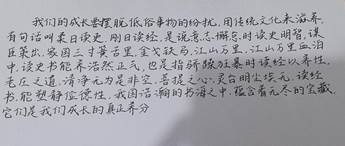 我们的成长要摆脱低俗事物的纷扰，用传统文化来滋养。
有句话叫柔日读史，刚日读经，是说意志懈怠时读史明智，谋
臣策出，家国三寸黄舌里，金戈铁马，江山万里，江山万里血泊
中，读史书能养浩然正气，也是指骄躁狂暴时读经以养性，
老庄之道，清净元为是非空，菩提之心，灵台明尘埃无，读经
书，能塑静俭德性。我国浩瀚的书海之中，蕴含着无尽的宝藏，
它们是我们成长的真正养分